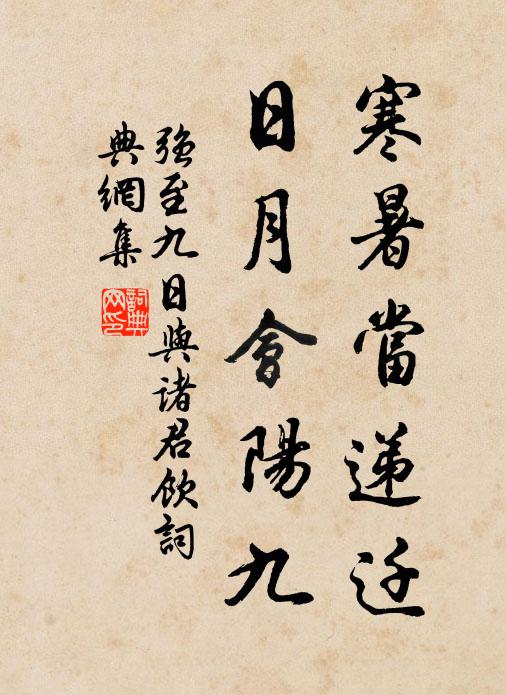 寒暑當遞迁
日月會陽九
強至九日與諸君飲詞
典網集
詞典网印